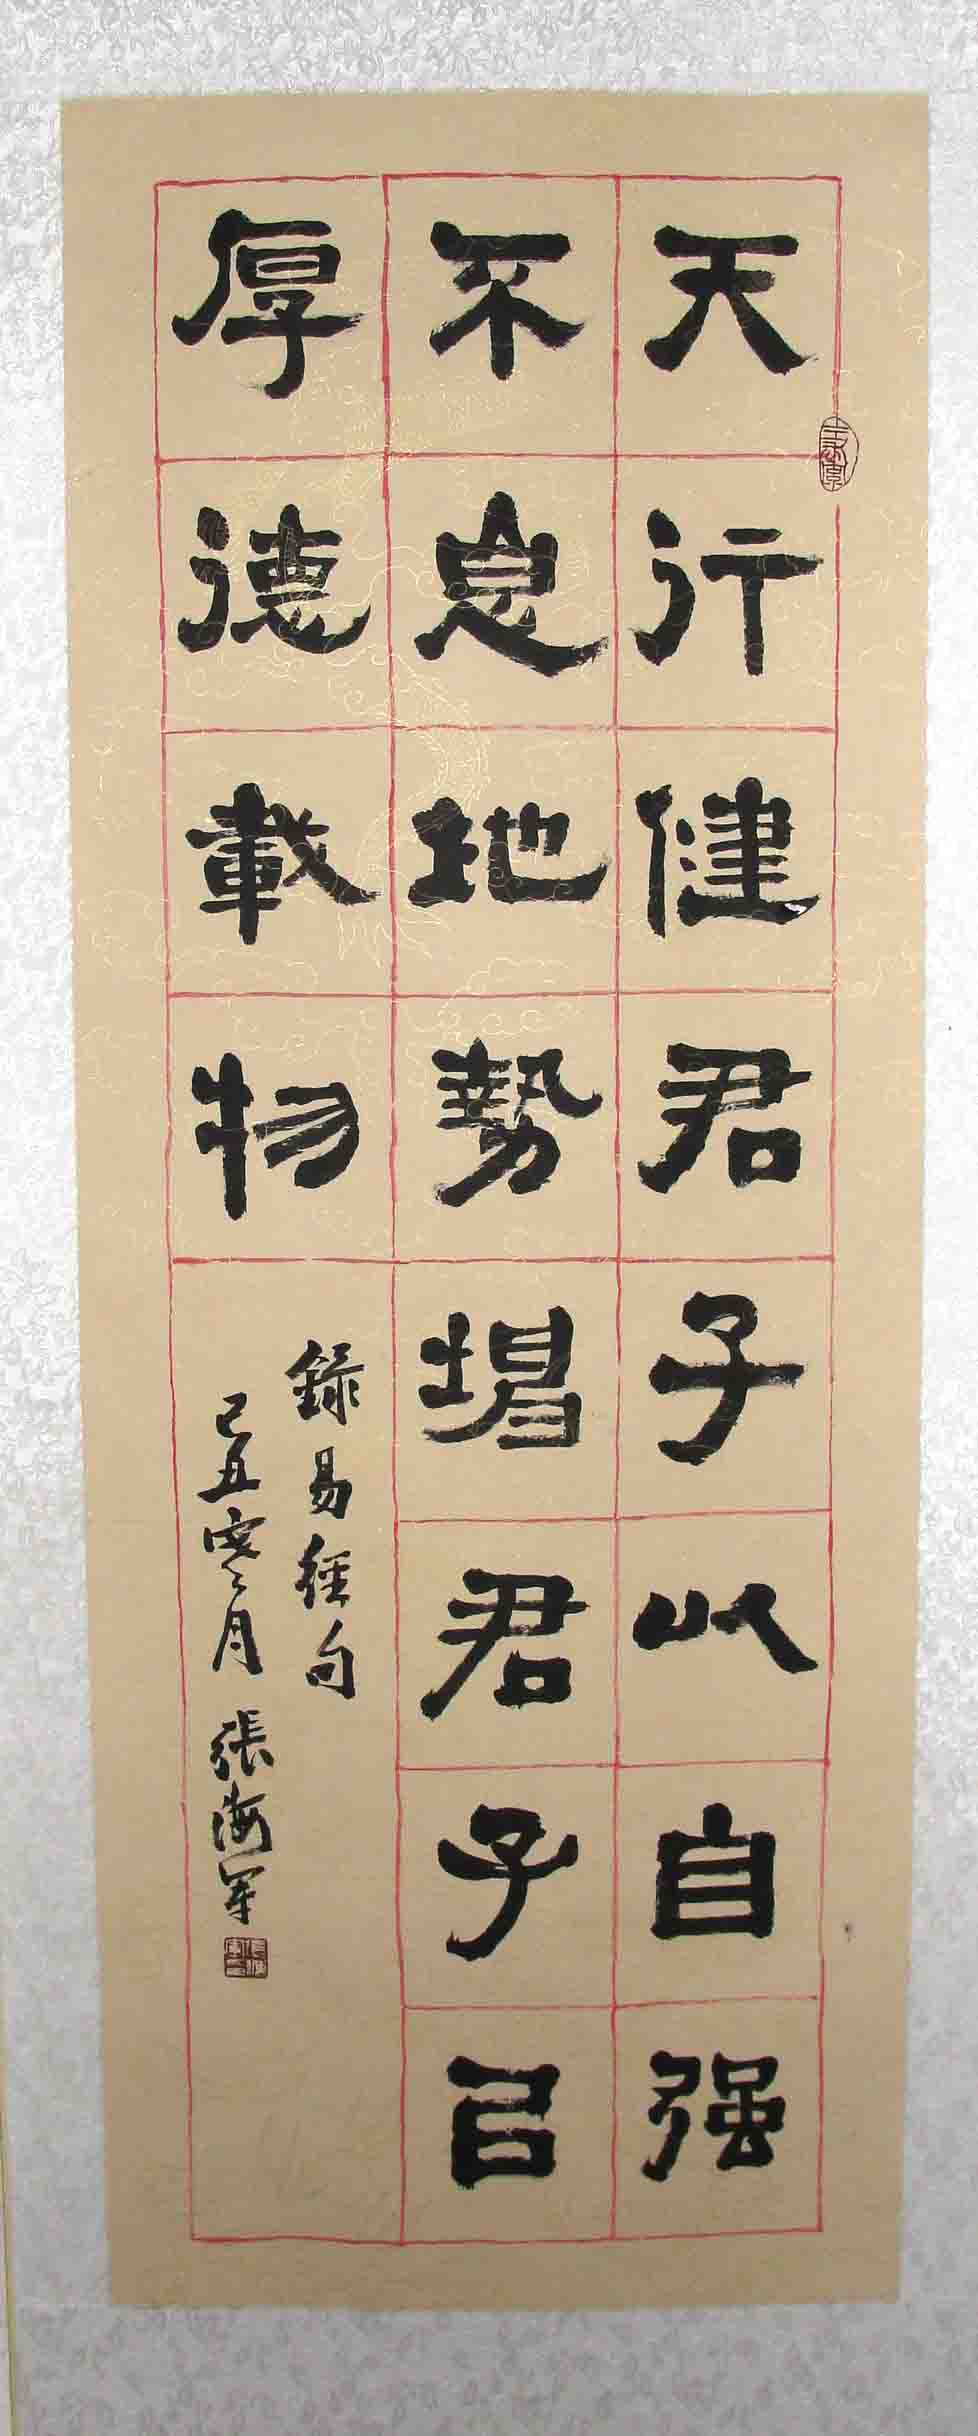 天行健君子以自强
不息地勢坤君子㠯
厚德載物
錄易經句
己丑寒月 張海軍